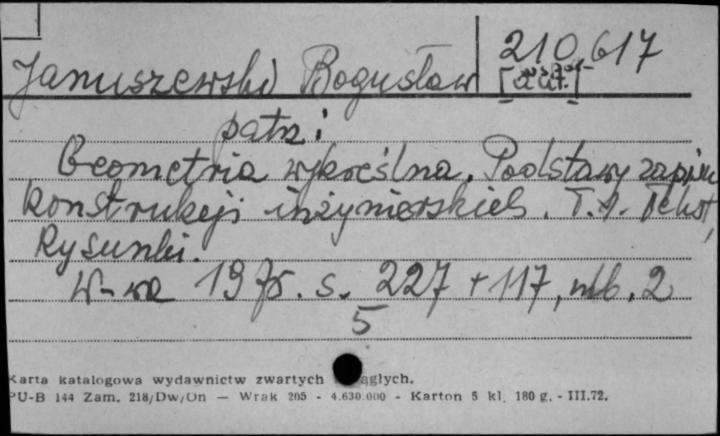 210,617
Januszewski Bogusław [aut.]
patrz:
Geometria wykreślna. Podstawy zapisu
konstrukcji inżynierskich. T.1. Tekst,
Rysunki.
W-wa 1975. s. 227 + 117, nlb. 2
5
Karta katalogowa wydawnictw zwartych ągłych.
PU-B 144 Zam. 218/Dw/On — Wrak 205 - 4.630.000 - Karton 5 kl. 180 g. - III.72.